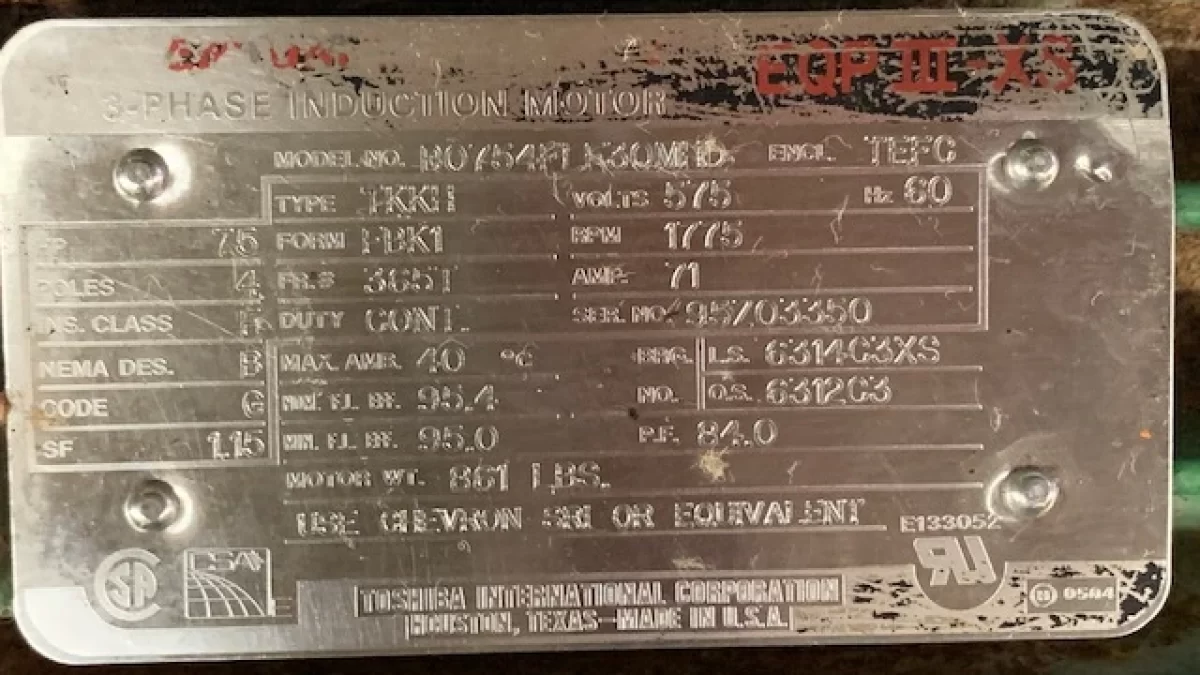 EQP III-XS
3-PHASE INDUCTION MOTOR
MODEL NO. ENCL. TEFC
TYPE TKKH VOLTS 575 Hz 60
HP 75 FORM FBK1 RPM 1775
POLES 4 FR.# 365T AMP. 71
INS. CLASS F DUTY CONT. SER. NO. 95203350
NEMA DES. B MAX. AMB. 40 °C BRG. L.S. 6314C3XS
CODE G NOM. F.L. EFF. 95.4 NO. O.S. 6312C3
SF 1.15 MIN. F.L. EFF. 95.0 P.F. 84.0
MOTOR WT. 861 LBS.
USE CHEVRON SRI OR EQUIVALENT
E133052
CSA
TOSHIBA INTERNATIONAL CORPORATION
HOUSTON, TEXAS—MADE IN U.S.A.
0504